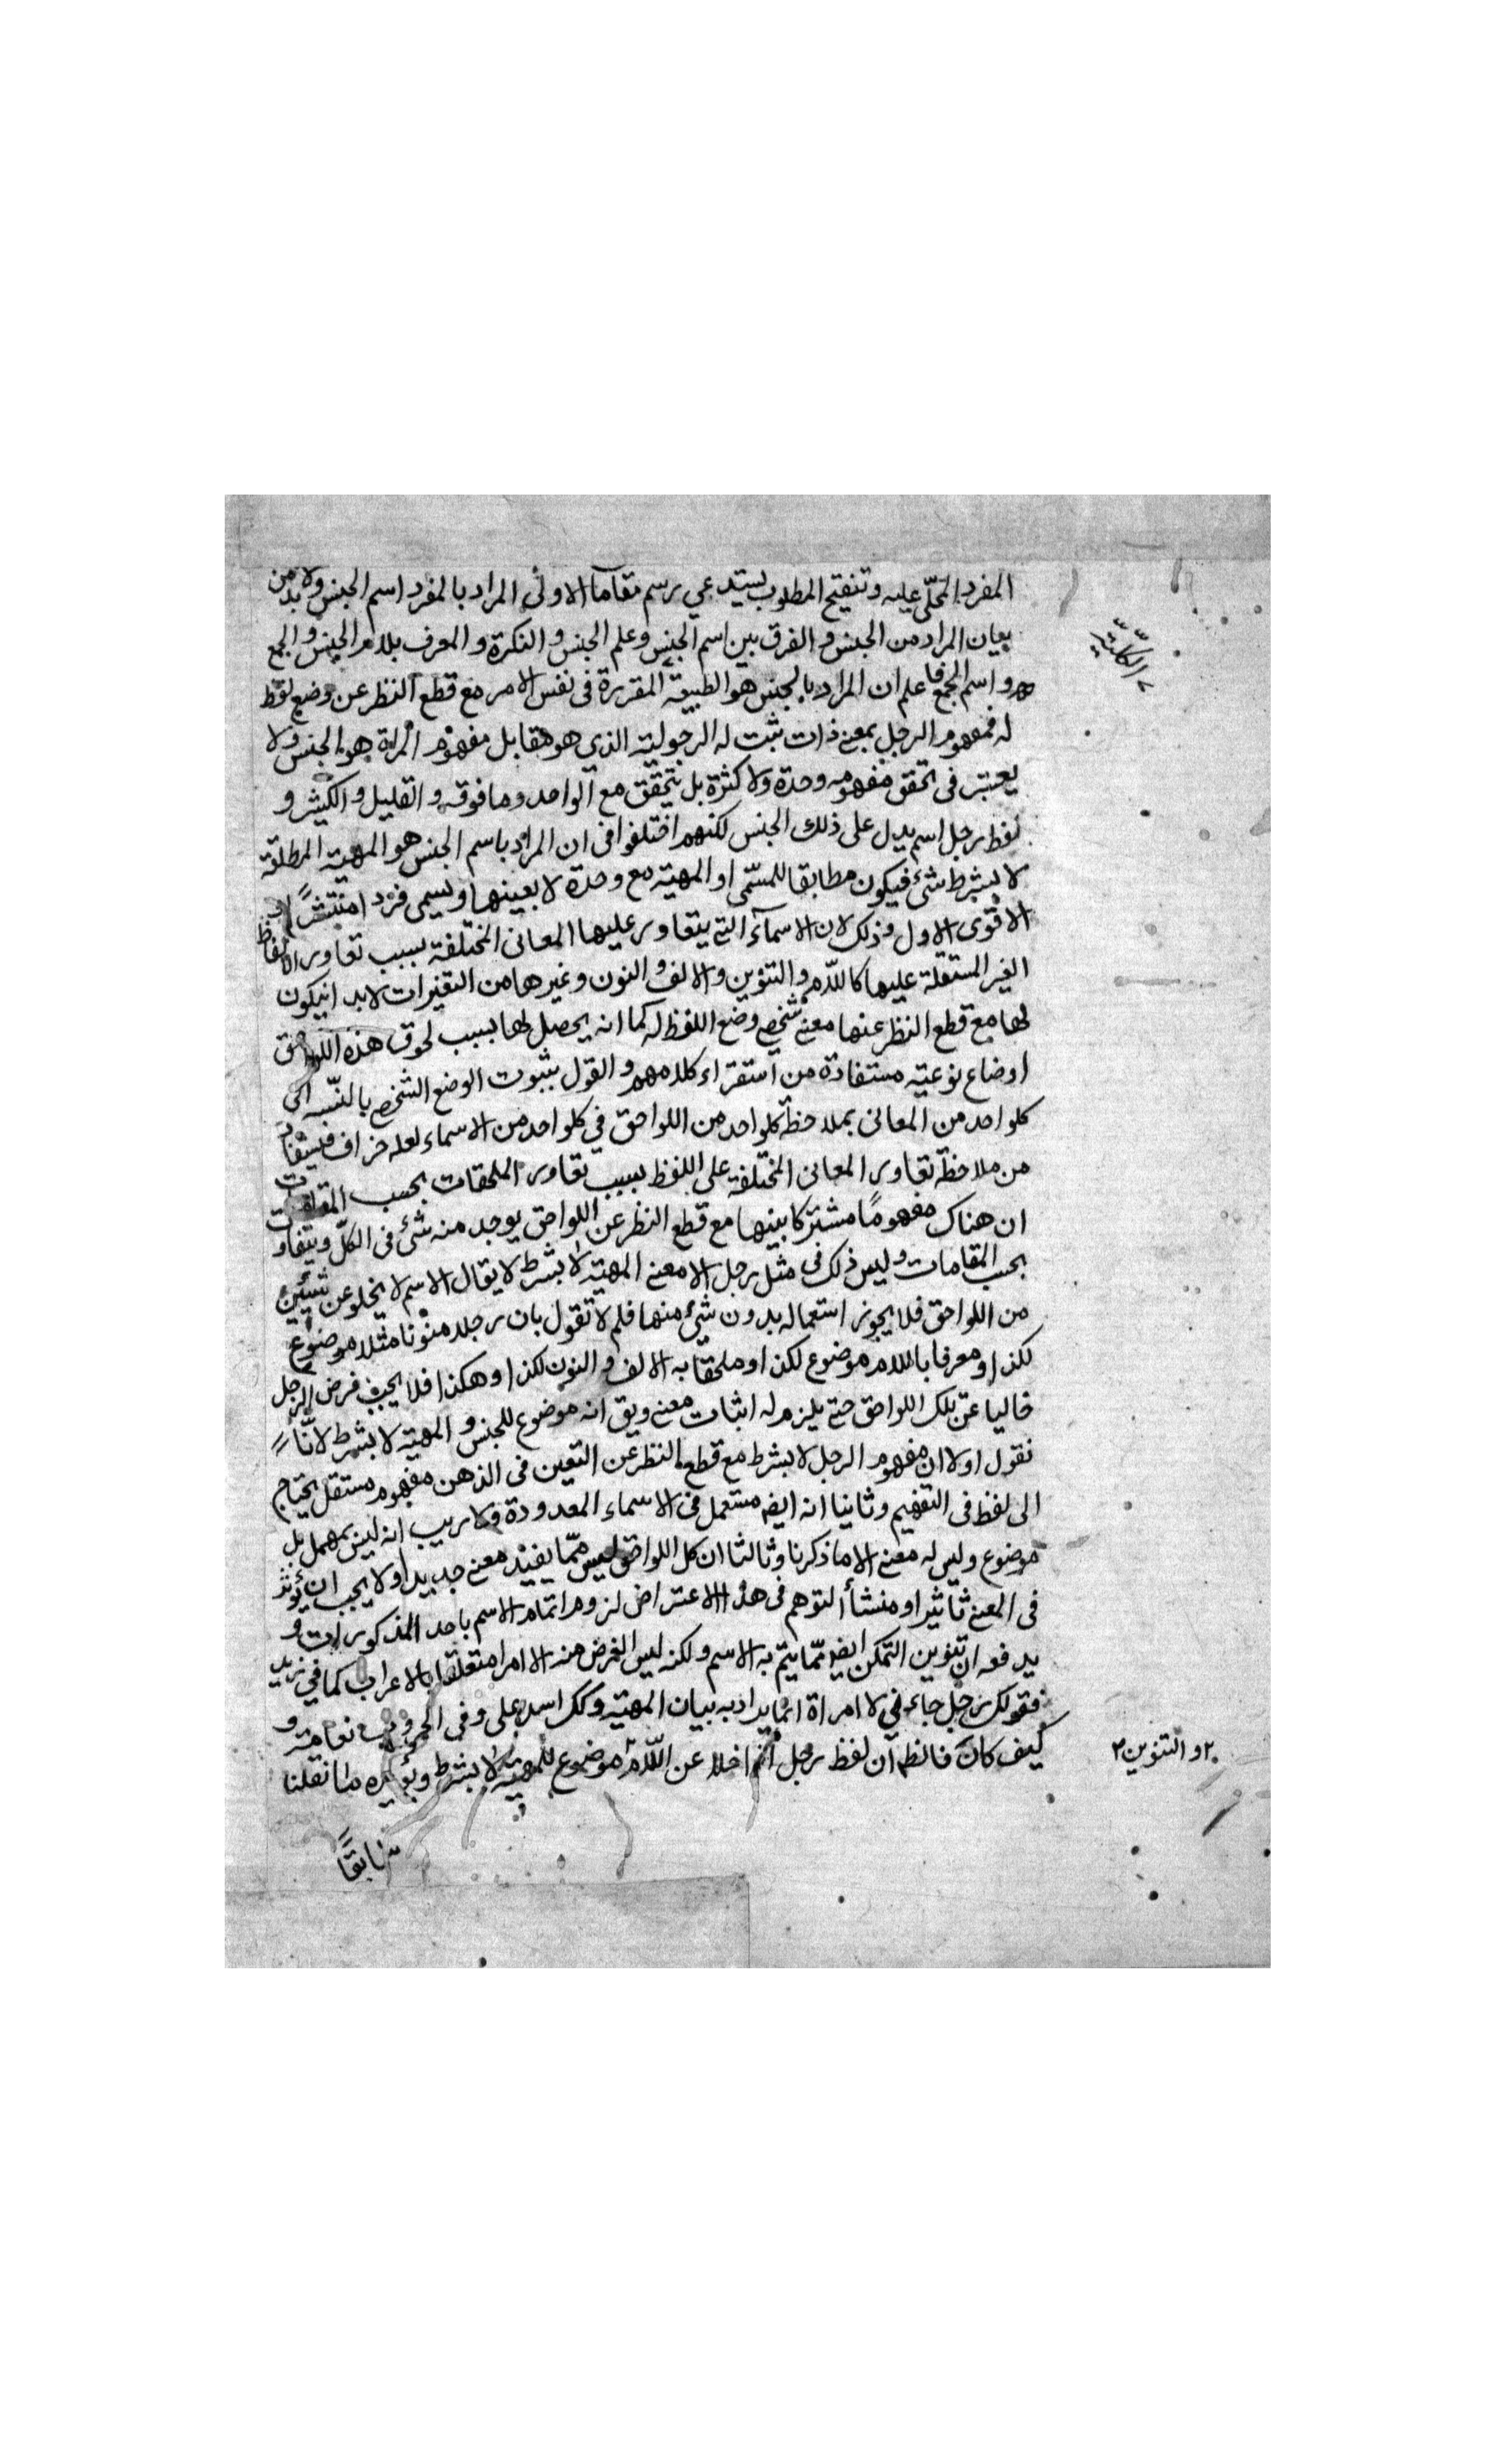 المفرد المحلّى عليه وتنقيح المطلوب يستدعي رسم مقامآ الاولى المراد بالمفرد اسم الجنس ولا بد من
بيان المراد من الجنس و الفرق بين اسم الجنس وعلم الجنس و النكرة و المعرف بلام الجنس و الجمع
و اسم الجمع فاعلم ان المراد بالجنس هو الطبيعة المقررة فى نفس الامر مع قطع النظر عن وضع لفظ
له فمفهوم الرجل بمعنى ذات ثبت له الرجولية الذي هو مقابل مفهوم المراة هو الجنس ولا
يعتبر فى تحقق مفهومه وحدة ولا كثرة بل يتحقق مع الواحد وما فوقه و القليل و الكثير و
لفظ رجل اسم يدل على ذلك الجنس لكنهم اختلفوا فى ان المراد باسم الجنس هو المهية المطلقة
لا بشرط شئ فيكون مطابقا للمسمّى او المهية مع وحدة لا بعينها ويسمى فردا منتشرًا و
الاقوى الاول وذلك لان الاسمآء التي يتعاور عليها المعانى المختلفة بسبب تعاور الالفاظ
الغير المستقلة عليها كاللام و التنوين و الالف و النون وغيرها من التغيرات لابد انيكون
لها مع قطع النظر عنها معنى شخصي وضع اللفظ له كما انه يحصل لها بسبب لحوق هذه اللواحق
اوضاع نوعية مستفادة من استقراء كلامهم و القول بثبوت الوضع الشخصي بالنسبه الى
كلواحد من المعانى بملاحظة كلواحد من اللواحق في كلواحد من الاسماء لعله جزاف فيستفاد
من ملاحظة تعاور المعانى المختلفة على اللفظ بسبب تعاور الملحقات بحسب المقامات
ان هناك مفهومًا مشتركا بينها مع قطع النظر عن اللواحق يوجد منه شئ فى الكلّ ويتفاوت
بحسب المقامات وليس ذلك فى مثل رجل الا معنى المهية لا بشرط لا يقال الاسم لا يخلو عن شئ
من اللواحق فلا يجوز استعماله بدون شئ منها فلم لا تقول بان رجلا منوّنا مثلا موضوع
لكذا و معرفا باللام موضوع لكذا و ملحقا به الالف و النون لكذا و هكذا فلا يجب فرض الرجل
خاليا عن تلك اللواحق حتى يلزم له اثبات معنى ويق انه موضوع للجنس و المهية لا بشرط لانّا
نقول اولا ان مفهوم الرجل لا بشرط مع قطع النظر عن التعين فى الذهن مفهوم مستقل يحتاج
الى لفظ فى التفهيم وثانيا انه ايضه مستعمل فى الاسماء المعدودة ولا ريب انه ليس بمهمل بل
موضوع وليس له معنى الا ما ذكرنا وثالثا ان كل اللواحق ليس ممّا يفيد معنى جديدا ولا يجب ان يؤثر
فى المعنى تاثيرا و منشأ التوهم فى هذا الاعتراض لزوم اتمام الاسم باحد المذكورات و
يدفعه ان تنوين التمكن ايضه ممّا يتم به الاسم ولكنه ليس الغرض منه الا امرا متعلقا بالاعراب كما في زيد
فقولك رجل جاءني لا امراة انما يراد به بيان المهية وكك اسد علي وفى الحروب نعامة و
كيف كان فالظم ان لفظ رجل اذا خلا عن اللام موضوع للمهية لا بشرط ويؤيده ما نقلنا
سابقًا
و التنوين ٢